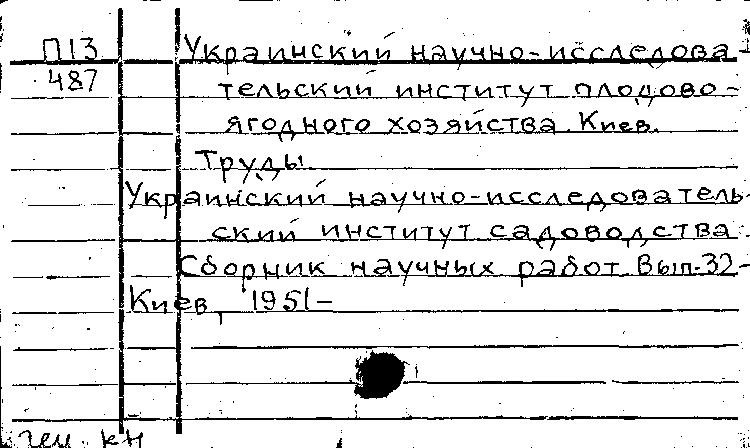 П13 Украинский научно-исследова-
487 тельский институт плодово-
ягодного хозяйства. Киев.
Труды
Украинский научно-исследователь-
ский институт садоводства
Сборник научных работ. Вып. 32-
Киев, 1951-